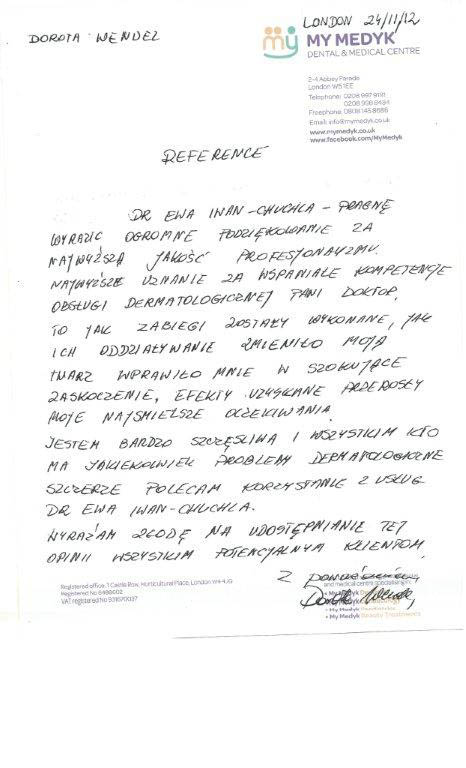 LONDON 24/11/12
DOROTA WENDEL
my MY MEDYK
DENTAL & MEDICAL CENTRE
2-4 Abbey Parade
London W5 1EE
Telephone: 0208 997 9191
0208 998 8494
Freephone: 0808 145 8686
Email: info@mymedyk.co.uk
www.mymedyk.co.uk
www.facebook.com/MyMedyk
REFERENCE
DR EWA IWAN-CHUCHLA - PRAGNĘ
WYRAZIĆ OGROMNE PODZIĘKOWANIE ZA
NAJWYŻSZĄ JAKOŚĆ PROFESJONALIZMU.
NAJWYŻSZE UZNANIE ZA WSPANIAŁE KOMPETENCJE
OBSŁUGI DERMATOLOGICZNEJ PANI DOKTOR.
TO JAK ZABIEGI ZOSTAŁY WYKONANE, JAK
ICH ODDZIAŁYWANIE ZMIENIŁO MOJĄ
TWARZ WPRAWIŁO MNIE W SZOKUJĄCE
ZASKOCZENIE, EFEKTY UZYSKANE PRZEROSŁY
MOJE NAJŚMIELSZE OCZEKIWANIA.
JESTEM BARDZO SZCZĘŚLIWA I WSZYSTKIM KTO
MA JAKIEKOLWIEK PROBLEMY DERMATOLOGICZNE
SZCZERZE POLECAM KORZYSTANIE Z USŁUG
DR EWA IWAN-CHUCHLA.
WYRAŻAM ZGODĘ NA UDOSTĘPNIANIE TEJ
OPINII WSZYSTKIM POTENCJALNYM KLIENTOM.
Z poważaniem,
Registered office: 1 Castle Row, Horticultural Place, London W4 4JQ
Registered No 6488602
VAT registered No 931570037
and medical centre specialising in:
• My Medyk
• My Medyk
• My Medyk
• My Medyk Beauty Treatments
Dorota Wendel